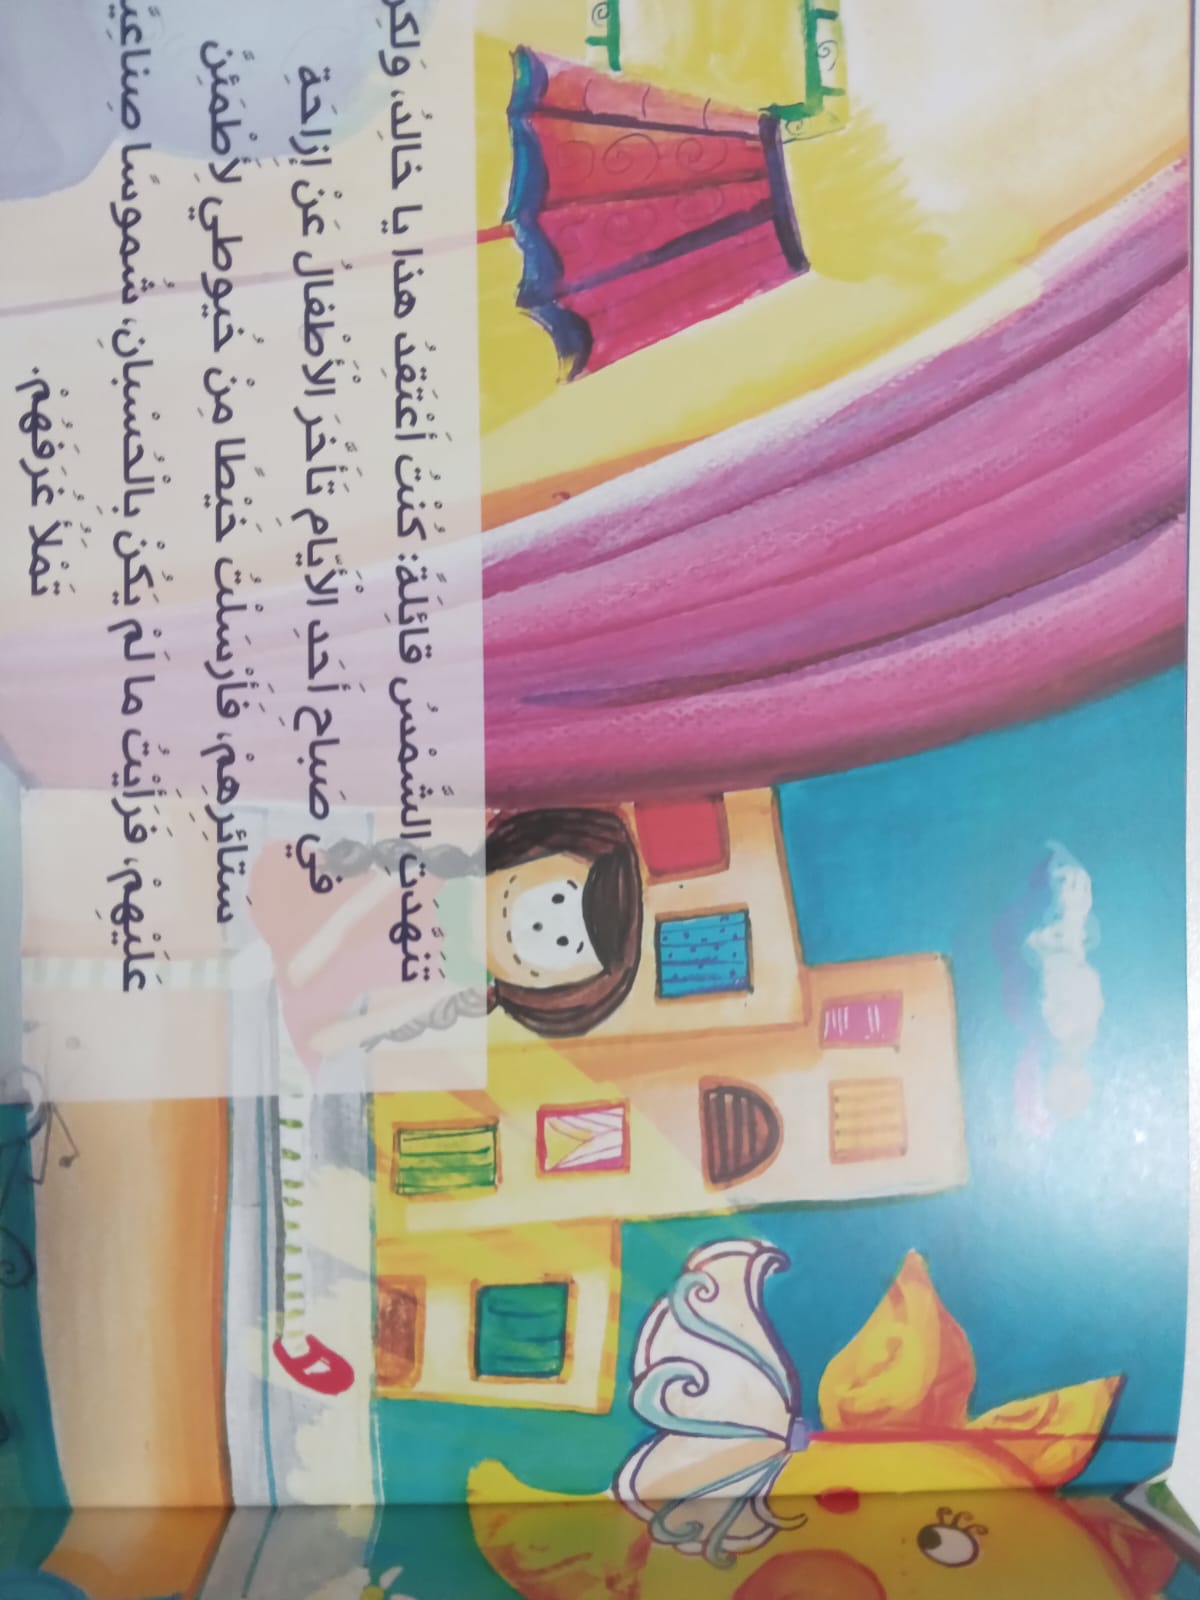 تَنَهَّدَتِ الشَّمْسُ قائِلَةً: كُنْتُ أَعْتَقِدُ هذا يا خالِدُ، وَلكِنْ
في صَباحِ أَحَدِ الْأَيّامِ تَأَخَّرَ الْأَطْفالُ عَنْ إِزاحَةِ
سَتائِرِهِمْ، فَأَرْسَلْتُ خَيْطًا مِنْ خُيوطي لِأَطْمَئِنَّ
عَلَيْهِمْ، فَرَأَيْتُ ما لَمْ يَكُنْ بِالْحُسْبانِ، شُموسًا
تَمْلَأُ غُرَفَهُمْ.